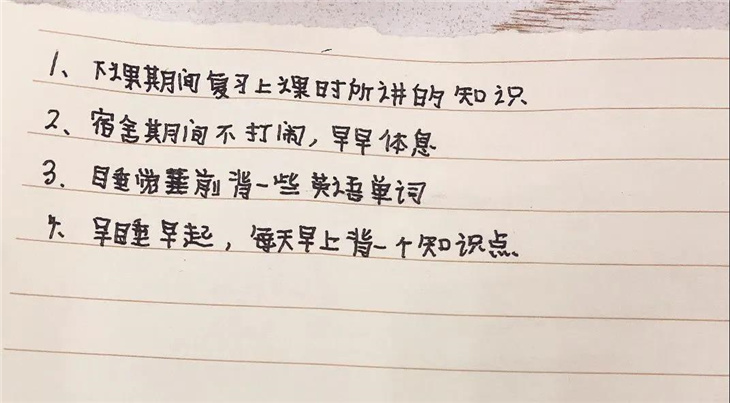 1、下课期间复习上课时所讲的知识
2、宿舍期间不打闹，早早体息
3、睡前背一些英语单词
4、早睡早起，每天早上背一个知识点